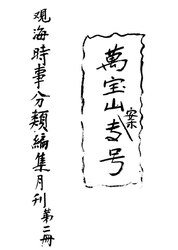 萬宝山案专号
观海時事分類編集月刊第二冊